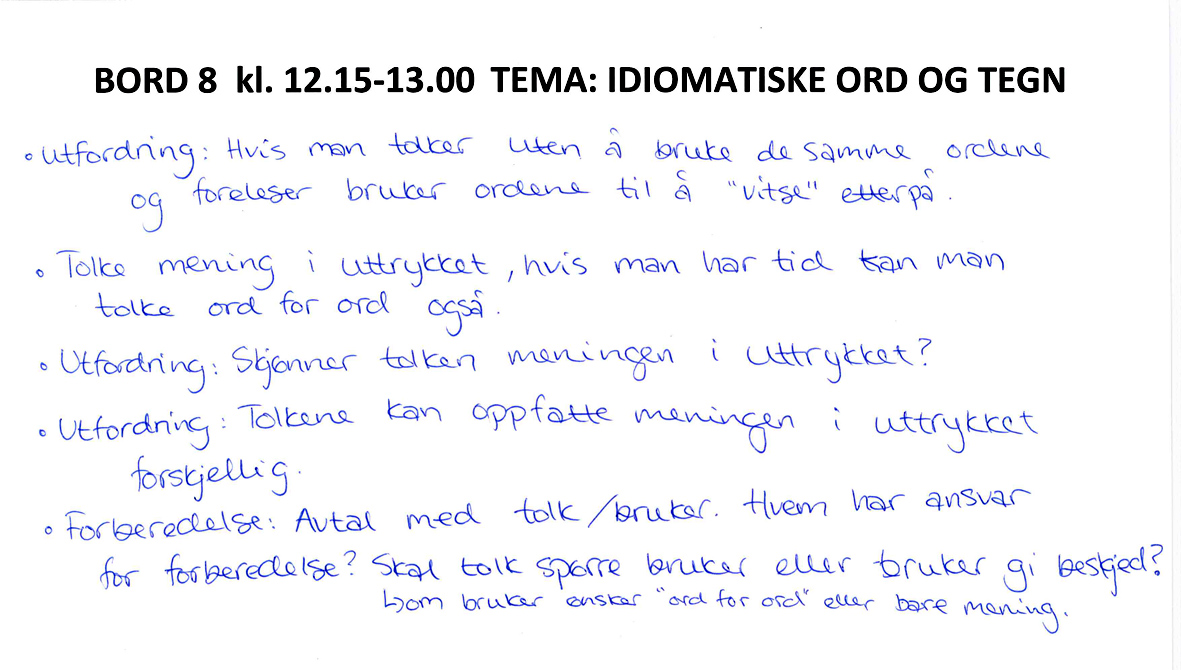 BORD 8 kl. 12.15-13.00 TEMA: IDIOMATISKE ORD OG TEGN
• Utfordring: Hvis man tolker uten å bruke de samme ordene
og foreleser bruker ordene til å "vitse" etterpå.
• Tolke mening i uttrykket, hvis man har tid kan man
tolke ord for ord også.
• Utfordring: Skjønner tolken meningen i uttrykket?
• Utfordring: Tolkene kan oppfatte meningen i uttrykket
forskjellig.
• Forberedelse: Avtal med tolk/bruker. Hvem har ansvar
for forberedelse? Skal tolk spørre bruker eller bruker gi beskjed?
↳ om bruker ønsker "ord for ord" eller bare mening.